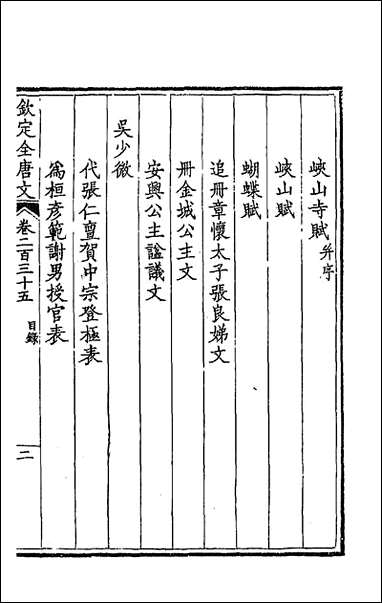 峽山寺賦并序
峽山賦
蝴蝶賦
追冊章懷太子張良娣文
冊金城公主文
安興公主諡議文
吳少微
代張仁亶賀中宗登極表
爲桓彥範謝男授官表
欽定全唐文 卷二百三十五 目錄 二